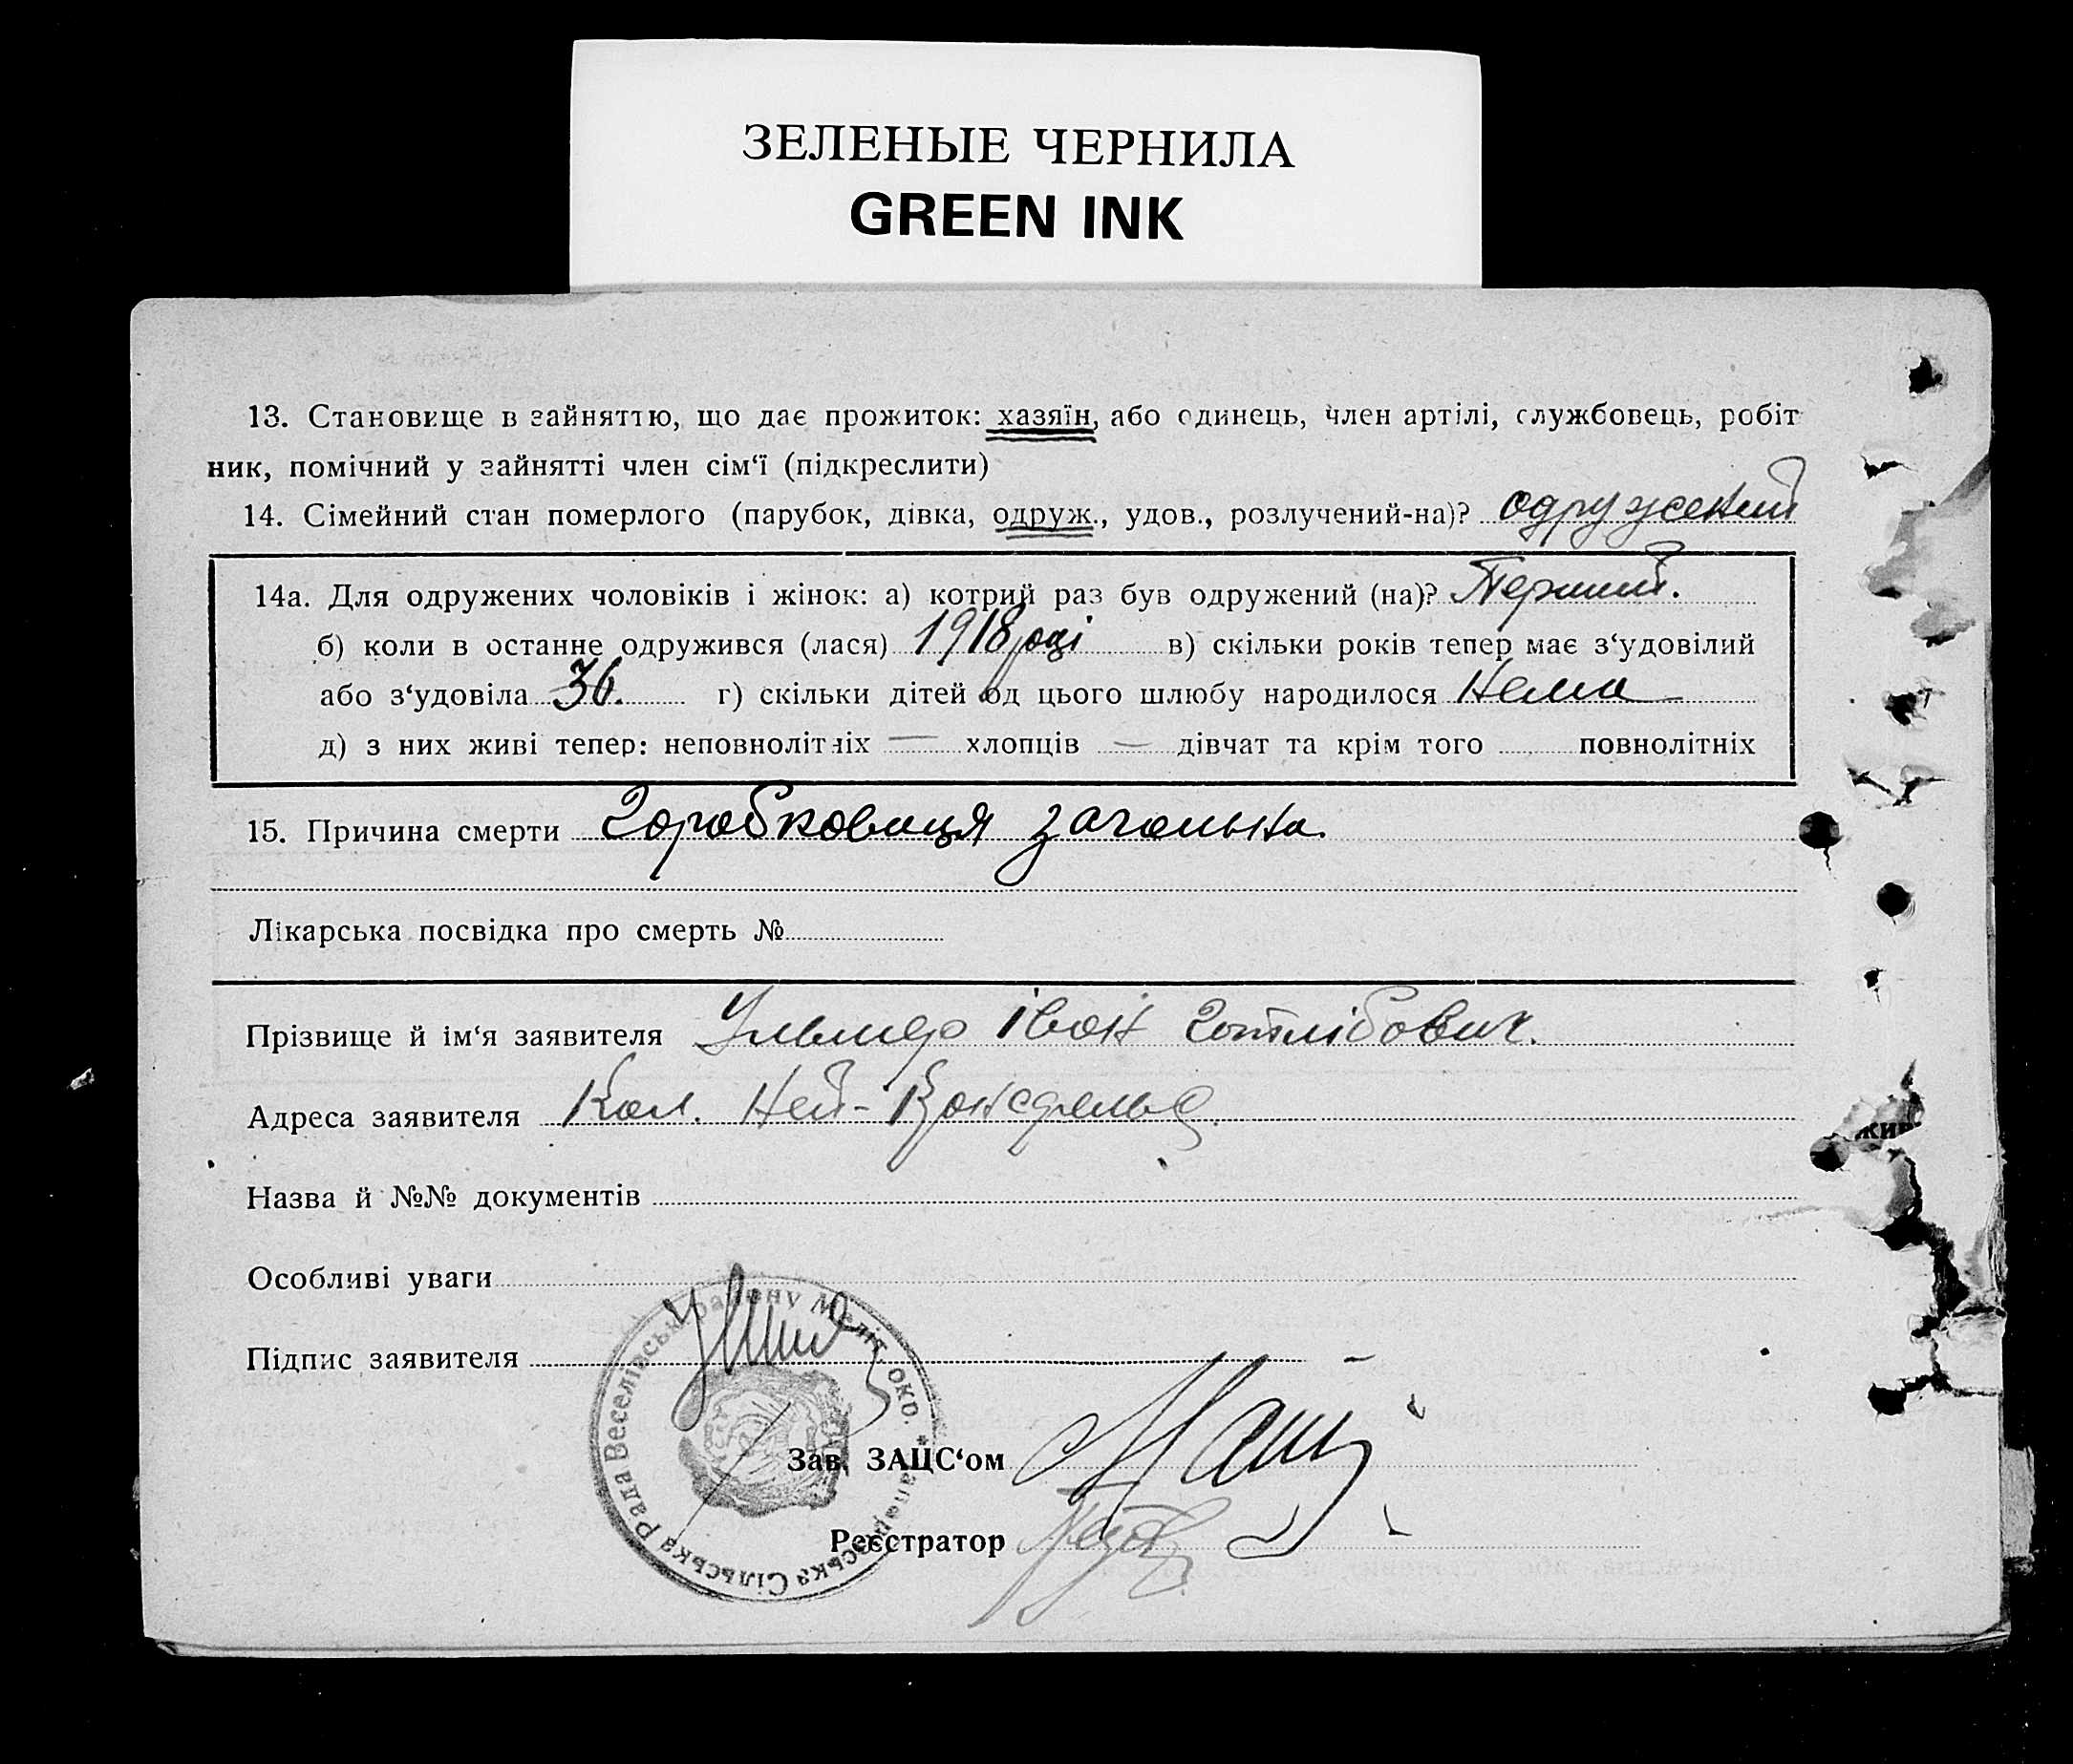 ЗЕЛЕНЫЕ ЧЕРНИЛА
GREEN INK
13. Становище в зайняттю, що дає прожиток: хазяїн, або одинець, член артілі, службовець, робіт
ник, помічний у зайнятті член сім‘ї (підкреслити)
14. Сімейний стан померлого (парубок, дівка, одруж., удов., розлучений-на)? одружений
14а. Для одружених чоловіків і жінок: а) котрий раз був одружений (на)? Перший.
б) коли в останнє одружився (лася) 1918 році в) скільки років тепер має з‘удовілий
або з‘удовіла 36. г) скільки дітей од цього шлюбу народилося Нема
д) з них живі тепер: неповнолітніх — хлопців — дівчат та крім того повнолітніх
15. Причина смерти
Лікарська посвідка про смерть №
Прізвище й ім‘я заявителя Іван Готлібович.
Адреса заявителя Кол. Ней-
жив
Назва й №№ документів
Особливі уваги
Підпис заявителя
Сільська Рада Веселівськ району Меліт. окр. *
Зав. ЗАЦС‘ом
Реєстратор